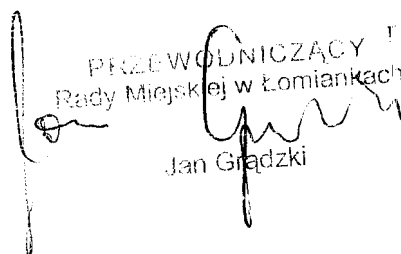 PRZEWODNICZĄCY
Rady Miejskiej w Łomiankach
Jan Grądzki